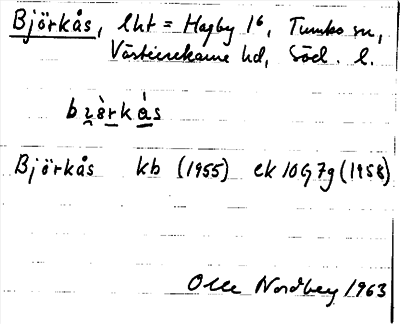 Björkås, lht = Hagby 1⁶, Tumbo sn,
Västerrekarne hd, Söd. l.
bi̯è̱rkà̱s
Björkås kb (1955) ek 10G7g (1958)
Olle Nordberg 1963